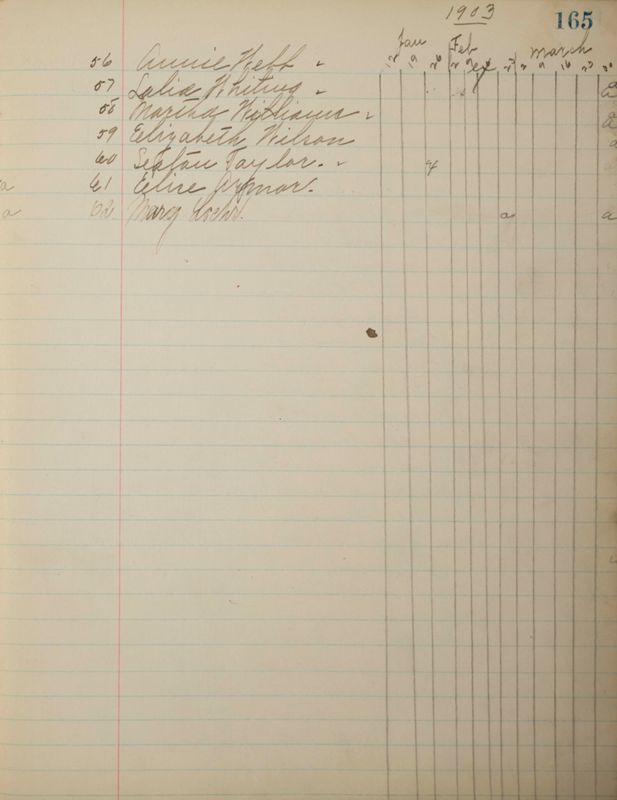 1903
165
Jan Feb March
12 19 26 2 9 ex 23 2 9 16 23 30
56 Annie Webb "
57 Lalia Whiting "
a
58 Martha Williams "
a
59 Elizabeth Wilson
a
60 Seaton Taylor. "
a 61 Elise
a 62 Mary a a